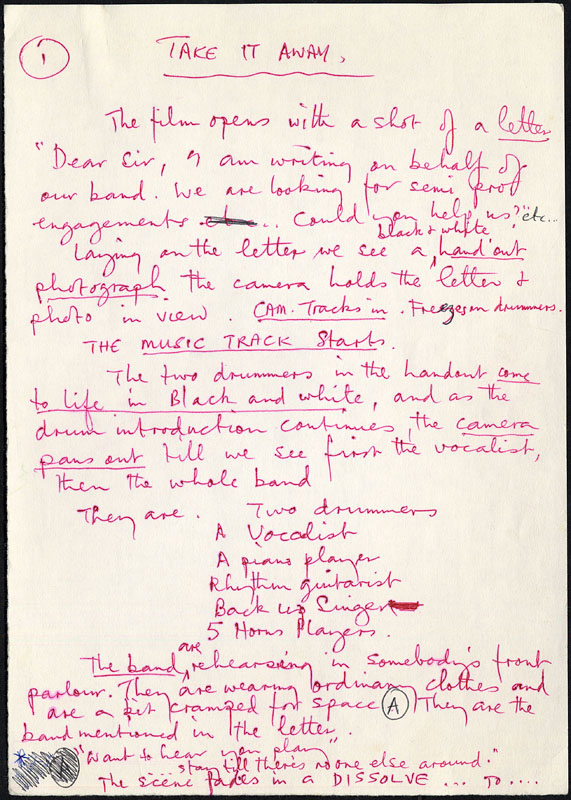 1
TAKE IT AWAY.
The film opens with a shot of a letter
"Dear Sir, I am writing on behalf of
our band. We are looking for semi prof
engagements ... Could you help us?" etc...
Laying on the letter we see a black & white 'hand out'
photograph the camera holds the letter &
photo in view. CAM. Tracks in. Freezes on drummers.
THE MUSIC TRACK Starts.
The two drummers in the handout come
to life in Black and white, and as the
drum introduction continues, the camera
pans out till we see first the vocalist,
then the whole band
They are. Two drummers
A Vocalist
A piano player
Rhythm guitarist
Back up Singer
5 Horns Players.
The band are rehearsing in somebody's front
parlour. They are wearing ordinary clothes and
are a bit cramped for space (A) They are the
band mentioned in the letter.
"Want to hear you play"
"stay till there's no one else around."
The scene fades in a DISSOLVE ... TO ....